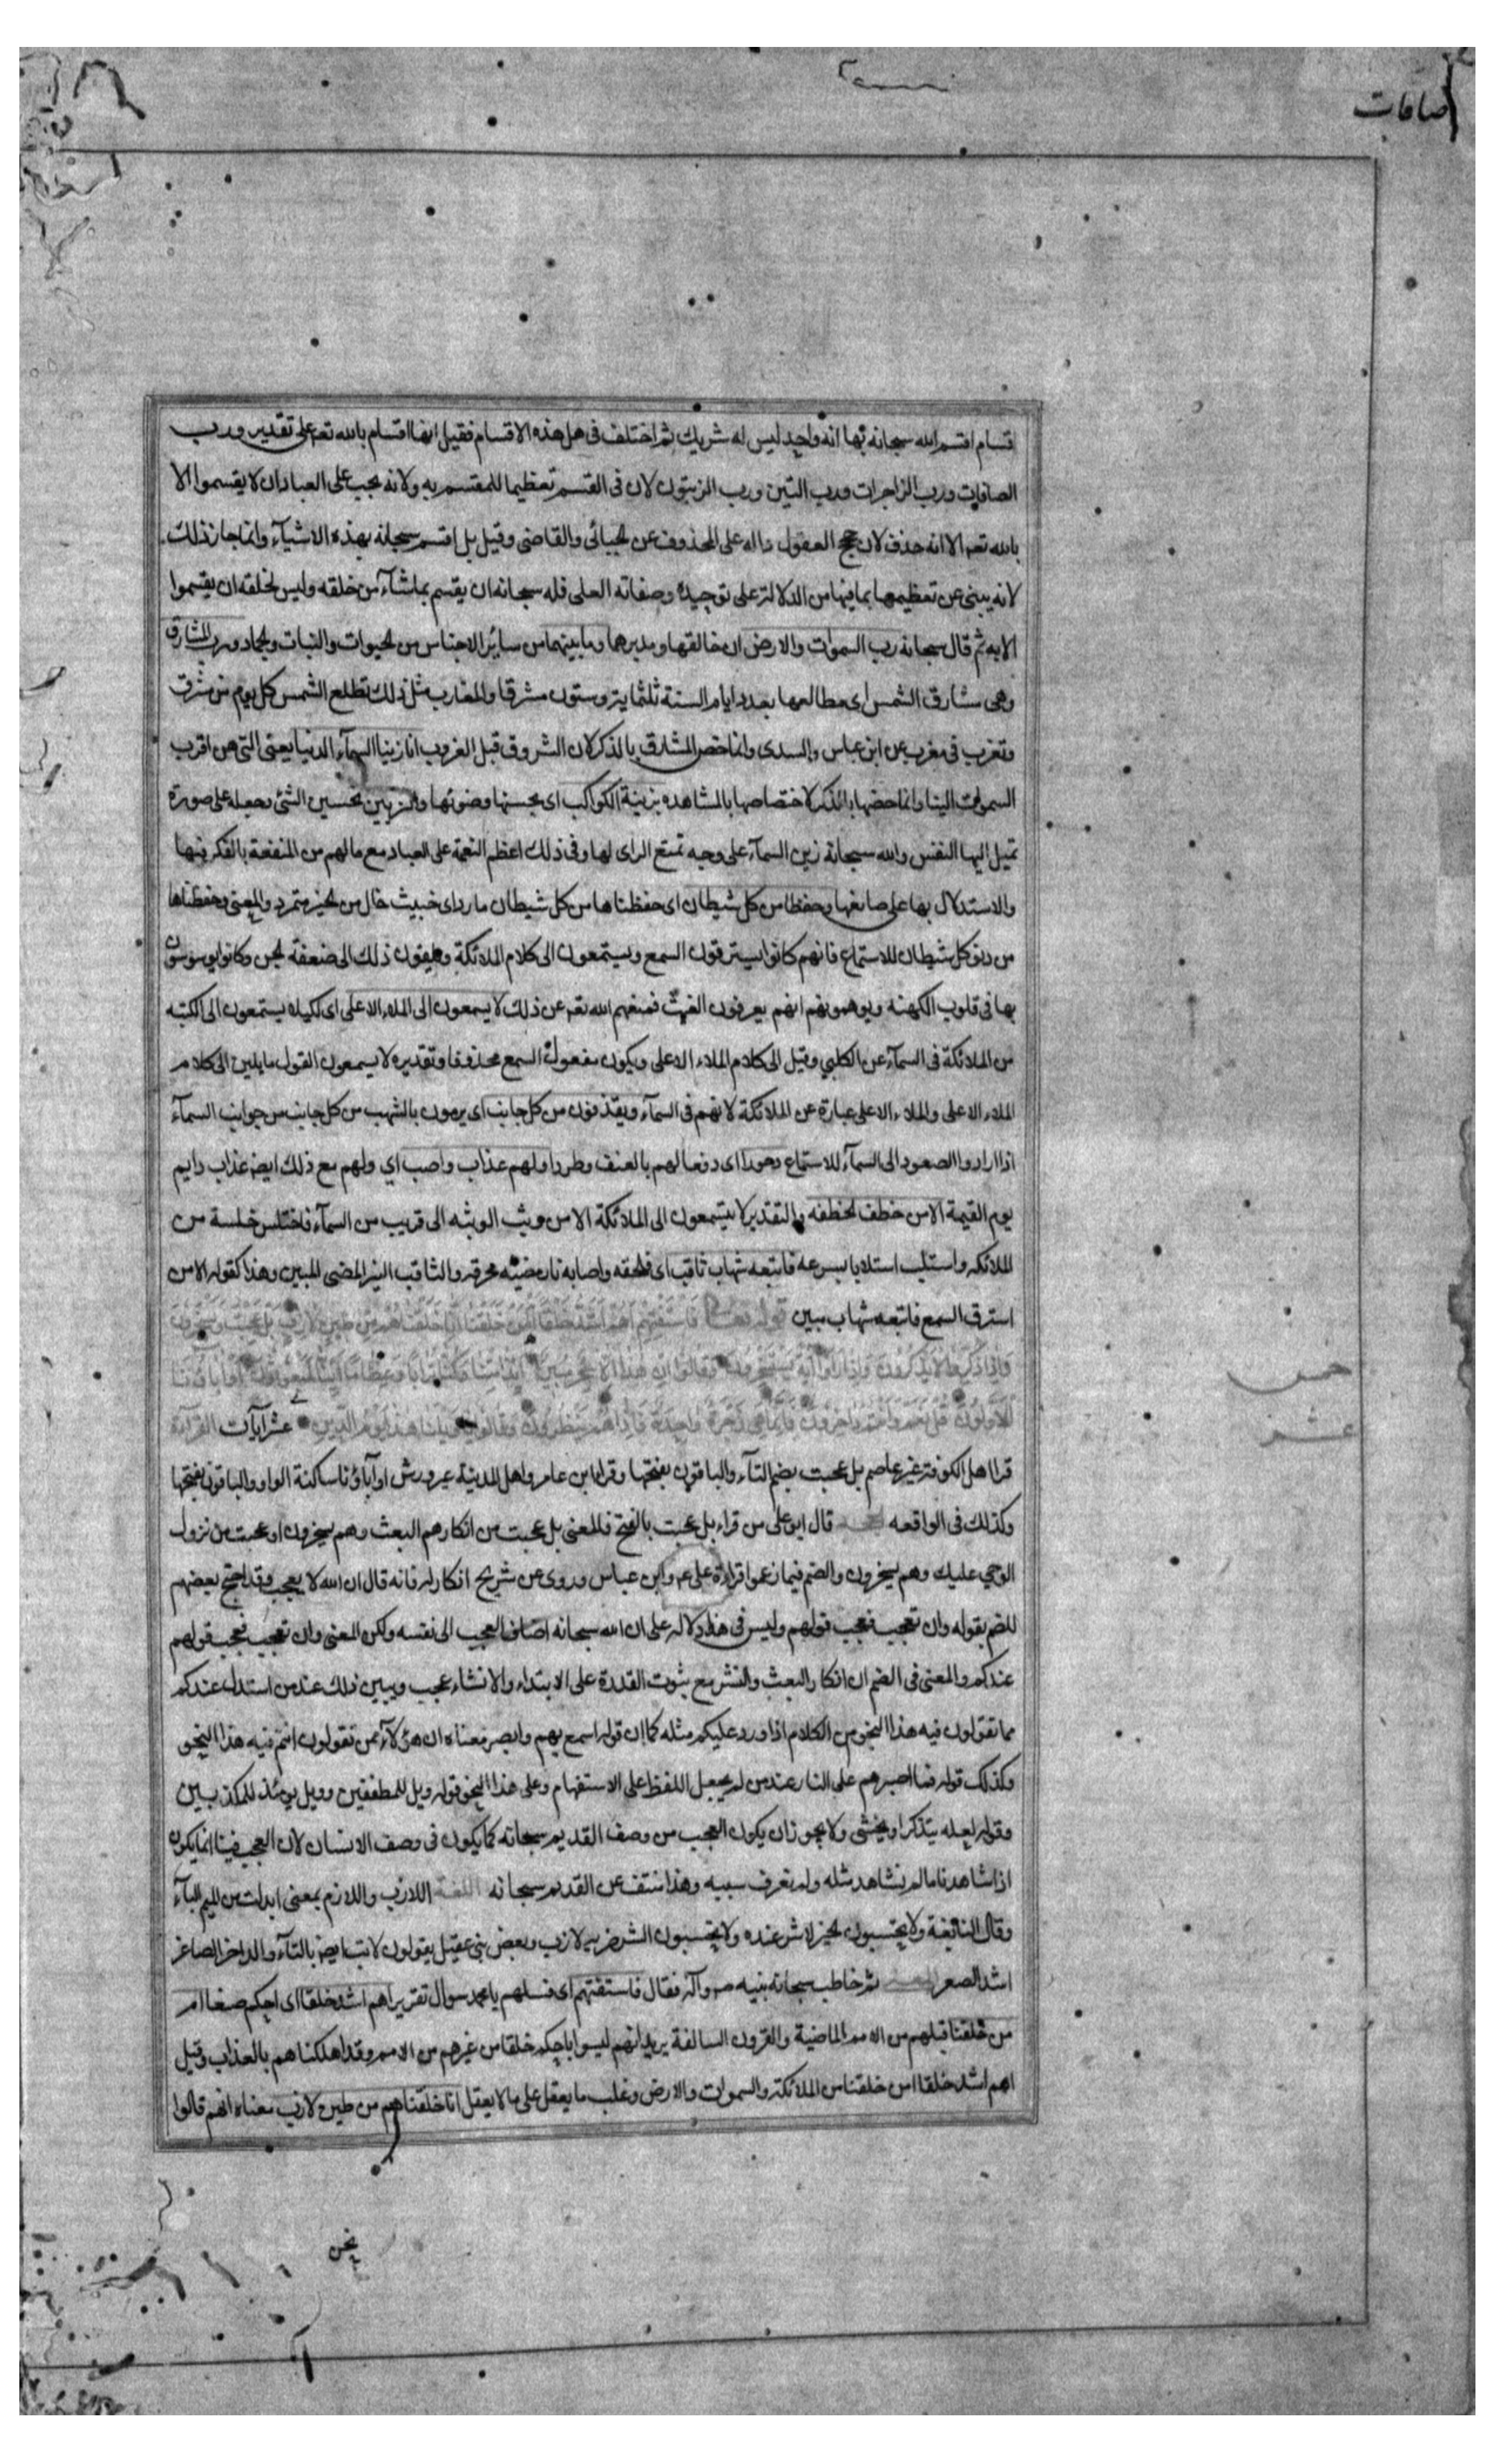 صافات
اقسام اقسم الله سبحانه بها انه واحد ليس له شريك ثم اختلف فى هل هذه الاقسام فقيل انها اقسام بالله تعـ على تقدير ورب
الصافات ورب الزاجرات ورب التين ورب الزيتون لان فى القسم تعظيما للمقسم به ولانه يجب على العباد ان لا يقسموا الا
بالله تعـ الا انه حذف لان حجج العقول داله على المحذوف عن الجبائى والقاضى وقيل بل اقسم سبحانه بهذه الاشياء وانما جاز ذلك
لانه ينبئ عن تعظيمها بما فيها من الدلالة على توحيده وصفاته العلى فله سبحانه ان يقسم بما شآء من خلقه وليس لخلقه ان يقسموا
الا به ثم قال سبحانه رب السموات والارض ان خالقها ومدبرهما وما بينهما من سائر الاجناس من الحيوات والنبات والجماد ورب المشارق
وهى مشارق الشمس اى مطالعها بعدد ايام السنة ثلثماية وستون مشرقا والمغارب مثل ذلك تطلع الشمس كل يوم من مشرق
وتغرب فى مغرب عن ابن عباس والسدى وانما خص المشارق بالذكر لان الشروق قبل الغروب انا زينا السمآء الدنيا يعنى التى هى اقرب
السموات الينا وانما خصها بالذكر لاختصاصها بالمشاهده بزينة الكواكب اى بحسنها وضوئها والتزيين تحسين الشئ وجعله على صورة
تميل اليها النفس والله سبحانه زين السمآء على وجه تمتع الراى لها وفى ذلك اعظم النعمة على العباد مع ما لهم من المنفعة بالفكر فيها
والاستدلال بها على صانعها وحفظا من كل شيطان اى حفظناها من كل شيطان مارد اى خبيث خال من الخير متمرد والمعنى وحفظناها
من دنو كل شيطان للاستماع فانهم كانوا يسترقون السمع ويستمعون الى كلام الملائكة ويلقون ذلك الى ضعفة الجن وكانوا يوسوسون
بها فى قلوب الكهنه ويوهمونهم انهم يعرفون الغيب فمنعهم الله تعـ عن ذلك لا يسمعون الى الملاء الاعلى اى لكيلا يستمعون الى الكتبه
من الملائكة فى السمآء عن الكلبي وقيل الى كلام الملاء الاعلى ويكون مفعول السمع محذوفا وتقديره لا يسمعون القول مايلين الى كلام
الملاء الاعلى والملاء الاعلى عبارة عن الملائكة لانهم فى السمآء ويقذفون من كل جانب اى يرمون بالشهب من كل جانب من جوانب السمآء
اذا ارادوا الصعود الى السمآء للاستماع دحورا اى دفعا لهم بالعنف وطردا ولهم عذاب واصب اي ولهم مع ذلك ايضا عذاب دايم
يوم القيمة الا من خطف الخطفه والتقدير لا يستمعون الى الملائكة الا من وثب الوثبه الى قريب من السمآء فاختلس خلسة من
الملائكه واستلب استلابا بسرعه فاتبعه شهاب ثاقب اى فلحقه واصابه نار مضيئه محرقه والثاقب النير المضى المبين وهذا كقوله الا من
استرق السمع فاتبعه شهاب مبين قوله تعـ فاستفتهم اهم اشد خلقا ام من خلقنا انا خلقناهم من طين لازب بل عجبت ويسخرون
واذا ذكروا لا يذكرون واذا راوا آية يستسخرون وقالوا ان هذا الا سحر مبين ائذا متنا وكنا ترابا وعظاما ائنا لمبعوثون او آباؤنا
الاولون قل نعم وانتم داخرون فانما هى زجرة واحدة فاذا هم ينظرون وقالوا يا ويلنا هذا يوم الدين عشر آيات القرآءة
قرا اهل الكوفة غير عاصم بل عجبت بضم التآء والباقون بفتحها وقرا ابن عامر واهل المدينة غير ورش او آباؤنا ساكنة الواو والباقون بفتحها
وكذلك فى الواقعه الحجـه قال ابو على من قراء بل عجبت بالفتح فالمعنى بل عجبت من انكارهم البعث وهم يسخرون او عجبت من نزول
الوحي عليك وهم يسخرون والضم فيما زعموا قراءة على ع م وابن عباس وروى عن شريح انكار له فانه قال ان الله لا يعجب وقد احتج بعضهم
للضم بقوله وان تعجب فعجب قولهم وليس فى هذا دلاله على ان الله سبحانه اضاف العجب الى نفسه ولكن المعنى وان تعجب فعجب قولهم
عندكم والمعنى فى الضم ان انكار البعث والنشر مع ثبوت القدرة على الابتداء والانشاء عجب ويبين ذلك عند من استدل عندكم
مما تقولون فيه هذا النحو من الكلام اذا ورد عليكم مثله كما ان قوله اسمع بهم وابصر معناه ان هؤلآء ممن تقولون انتم فيه هذا النحو
وكذلك قوله فما اصبرهم على النار عند من لم يجعل اللفظ على الاستفهام وعلى هذا النحو قوله ويل للمطففين وويل يومئذ للمكذبين
وقوله لعله يتذكر او يخشى ولا يجوز ان يكون العجب من وصف القديم سبحانه كما يكون فى وصف الانسان لان العجب فينا انما يكون
اذا شاهدنا ما لم نشاهد مثله ولم نعرف سببه وهذا منتف عن القديم سبحانه اللغة اللازب واللازم بمعنى ابدلت من الميم البآء
وقال النابغة ولا يحسبون الخير لا شر عنده ولا يحسبون الشر ضربه لازب وبعض بنى عقيل يقولون لاتب ايضا بالتآء والداخر الصاغر
اشد الصغر المعنى ثم خاطب سبحانه نبيه ص وآله فقال فاستفتهم اى فسلهم يا محمد سوال تقرير اهم اشد خلقا اى احكم صنعا ام
من خلقنا قبلهم من الامم الماضية والقرون السالفة يريد انهم ليسوا باحكم خلقا من غيرهم من الامم وقد اهلكناهم بالعذاب وقيل
اهم اشد خلقا ام من خلقنا من الملائكة والسموات والارض وغلب ما يعقل على ما لا يعقل انا خلقناهم من طين لازب معناه انهم قالوا
خمس
عشر
نحن